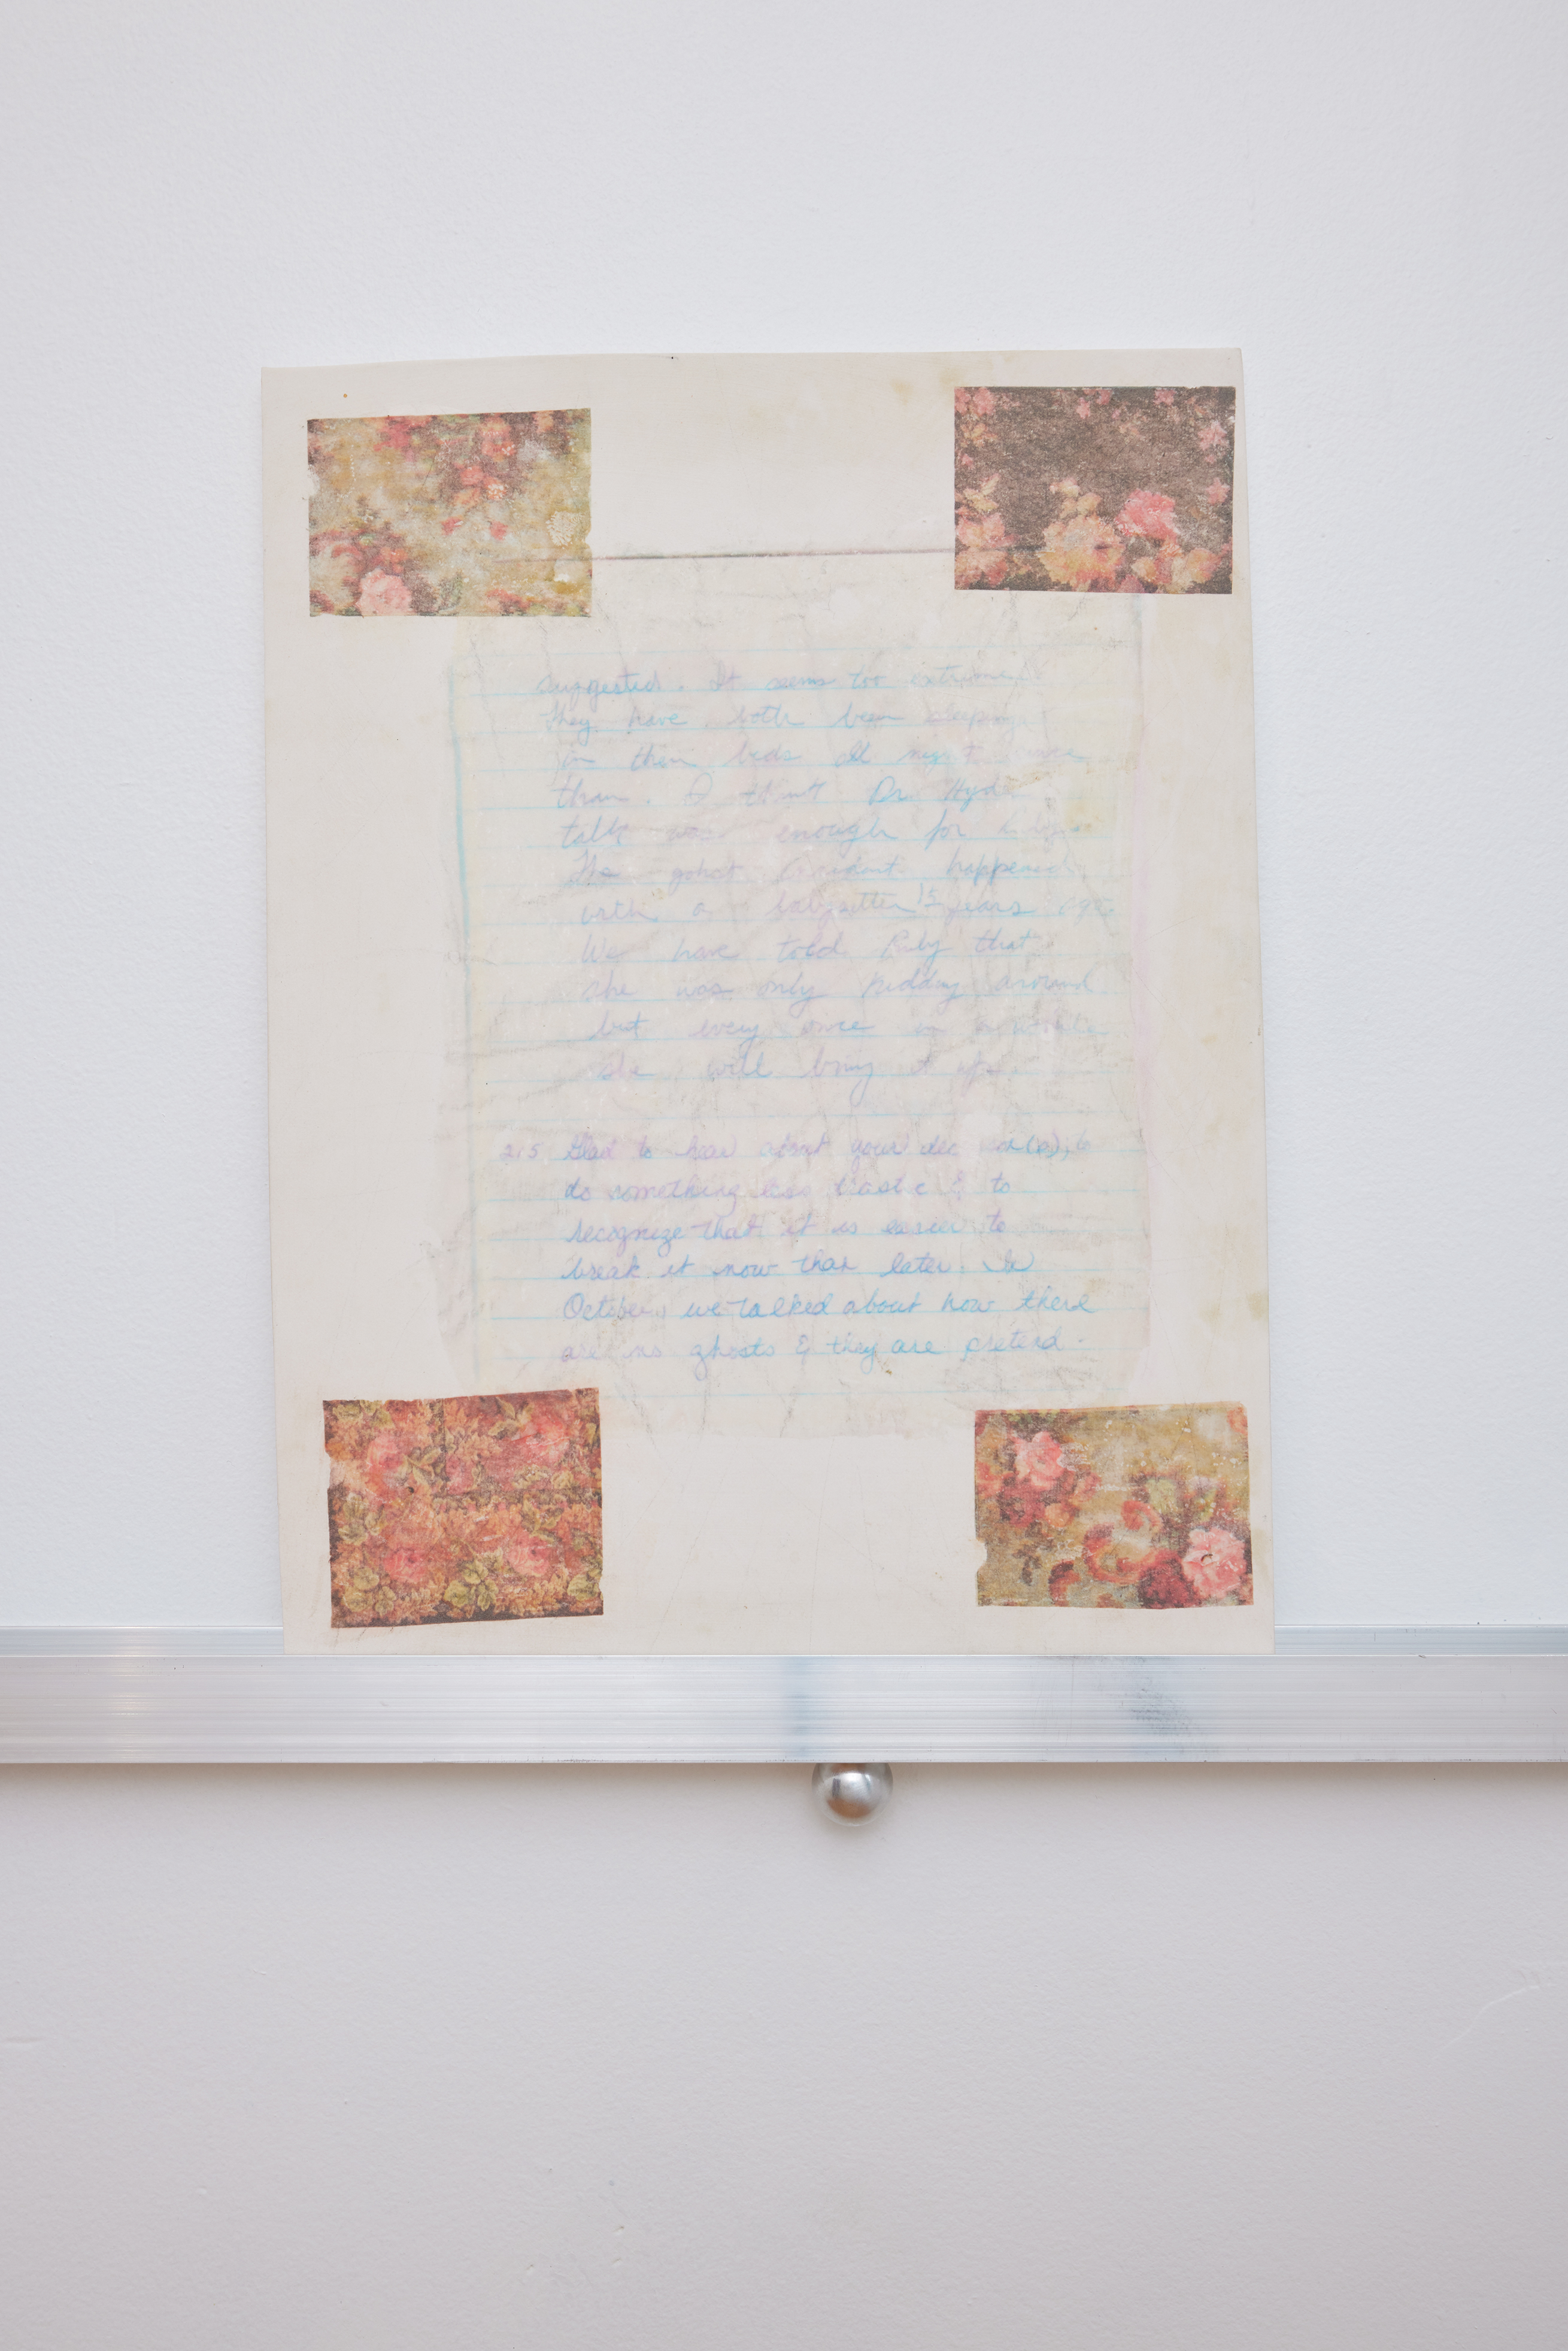 suggested. It seems too extreme
They have both been sleeping
in their beds all night since
then. I think Dr. Hyde
talk was enough for
The gohst happened
with a babysitter 1½ years ago.
We have told Ruby that
she was only kidding around
but every once in a while
she will bring it up.
2/5 Glad to hear about your to
do something less drastic & to
recognize that it is easier to
break it now than later. In
October, we talked about how there
are no ghosts & they are pretend.